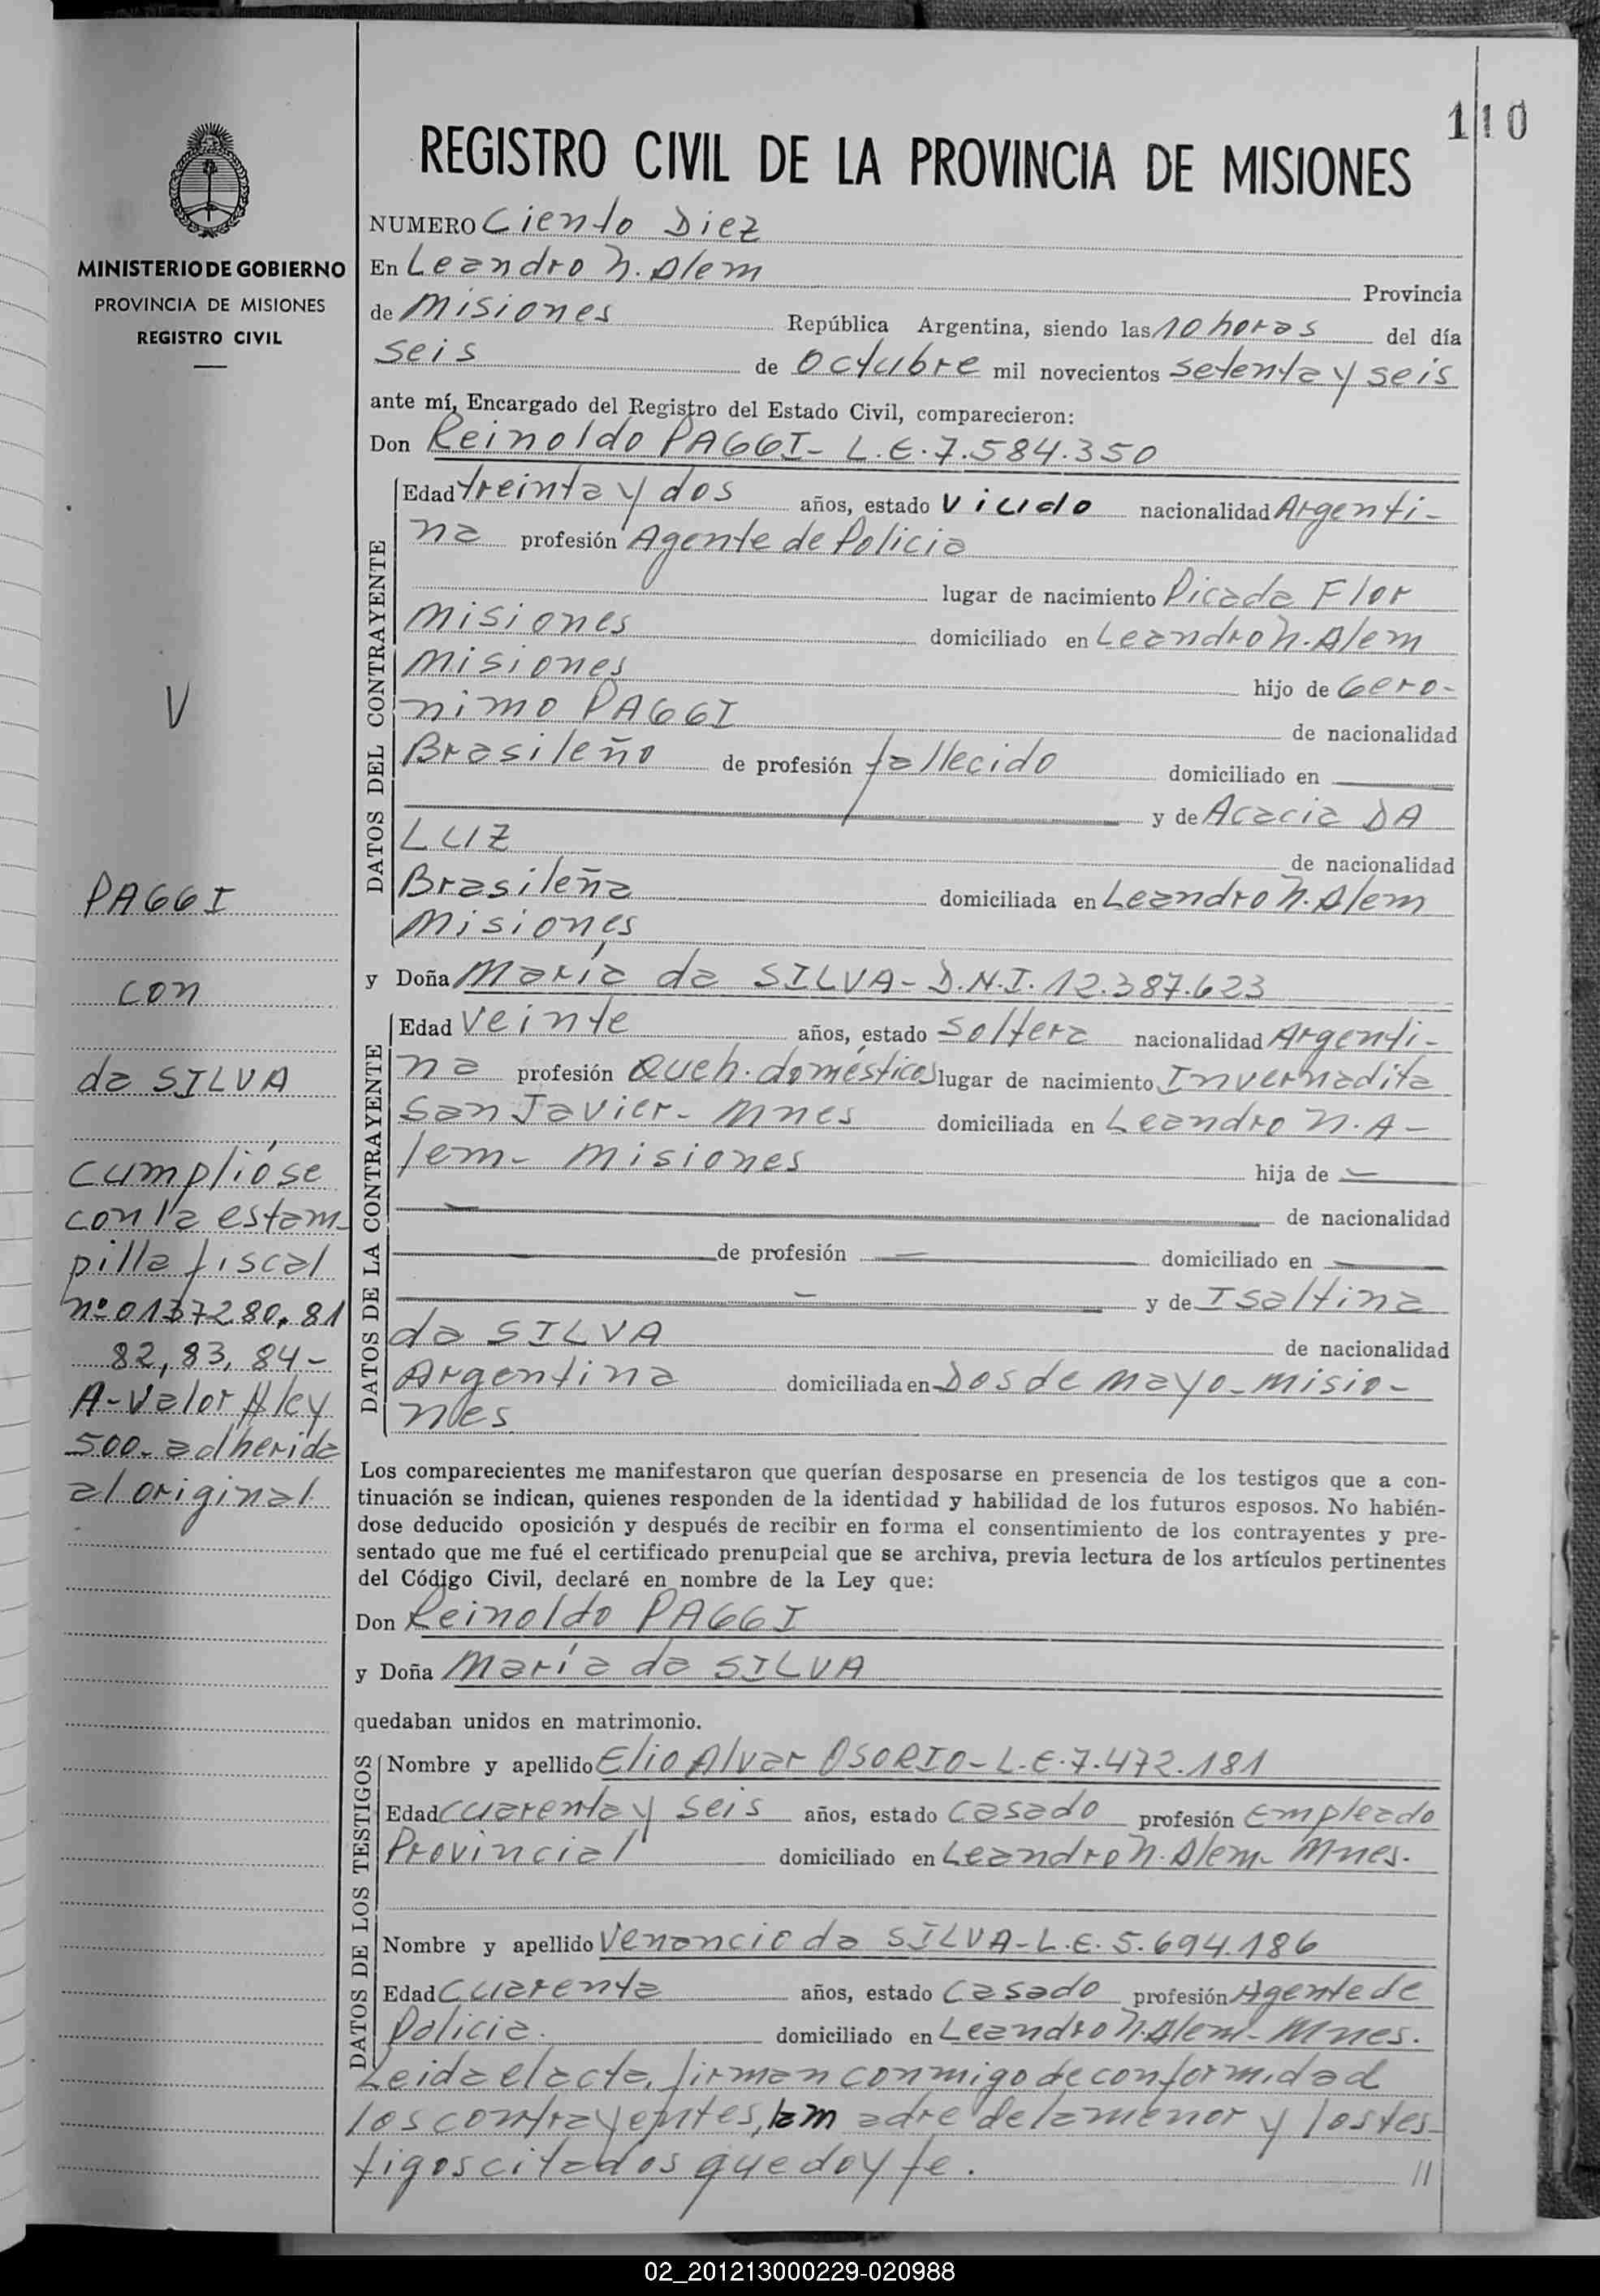 110
REGISTRO CIVIL DE LA PROVINCIA DE MISIONES
MINISTERIO DE GOBIERNO
PROVINCIA DE MISIONES
REGISTRO CIVIL
V
PAGGI
con
da SILVA
cumplióse
con la estam-
pilla fiscal
nº 0137280, 81
82, 83, 84-
A-Valor $ ley
500- adherida
al original
NUMERO Ciento Diez
En Leandro N. Alem Provincia
de Misiones República Argentina, siendo las 10 horas del día
seis de Octubre mil novecientos setenta y seis
ante mí, Encargado del Registro del Estado Civil, comparecieron:
Don Reinoldo PAGGI- L.E. 7.584.350
DATOS DEL CONTRAYENTE
Edad treinta y dos años, estado viudo nacionalidad Argenti-
na profesión Agente de Policia
lugar de nacimiento Picada Flor
Misiones domiciliado en Leandro N. Alem
Misiones hijo de Gero-
nimo PAGGI de nacionalidad
Brasileño de profesión fallecido domiciliado en
y de Acacia DA
LUZ de nacionalidad
Brasileña domiciliada en Leandro N. Alem
Misiones
y Doña María da SILVA- D.N.I. 12.387.623
DATOS DE LA CONTRAYENTE
Edad veinte años, estado soltera nacionalidad Argenti-
na profesión Queh. domésticos lugar de nacimiento Invernadita
San Javier- Mnes domiciliada en Leandro N. A-
lem- Misiones hija de —
de nacionalidad
de profesión — domiciliado en —
y de Isaltina
da SILVA de nacionalidad
Argentina domiciliada en Dos de Mayo- Misio-
nes
Los comparecientes me manifestaron que querían desposarse en presencia de los testigos que a con-
tinuación se indican, quienes responden de la identidad y habilidad de los futuros esposos. No habién-
dose deducido oposición y después de recibir en forma el consentimiento de los contrayentes y pre-
sentado que me fué el certificado prenupcial que se archiva, previa lectura de los artículos pertinentes
del Código Civil, declaré en nombre de la Ley que:
Don Reinoldo PAGGI
y Doña María da SILVA
quedaban unidos en matrimonio.
DATOS DE LOS TESTIGOS
Nombre y apellido Elio Alvar OSORIO- L.E. 7.472.181
Edad cuarenta y seis años, estado casado profesión Empleado
Provincial domiciliado en Leandro N. Alem- Mnes.
Nombre y apellido Venancio da SILVA- L.E. 5.694.186
Edad cuarenta años, estado casado profesión Agente de
Policia. domiciliado en Leandro N. Alem- Mnes.
Leida el acta, firman conmigo de conformidad
los contrayentes, la madre de la menor y los tes-
tigos citados que doy fe. //
02_201213000229-020988